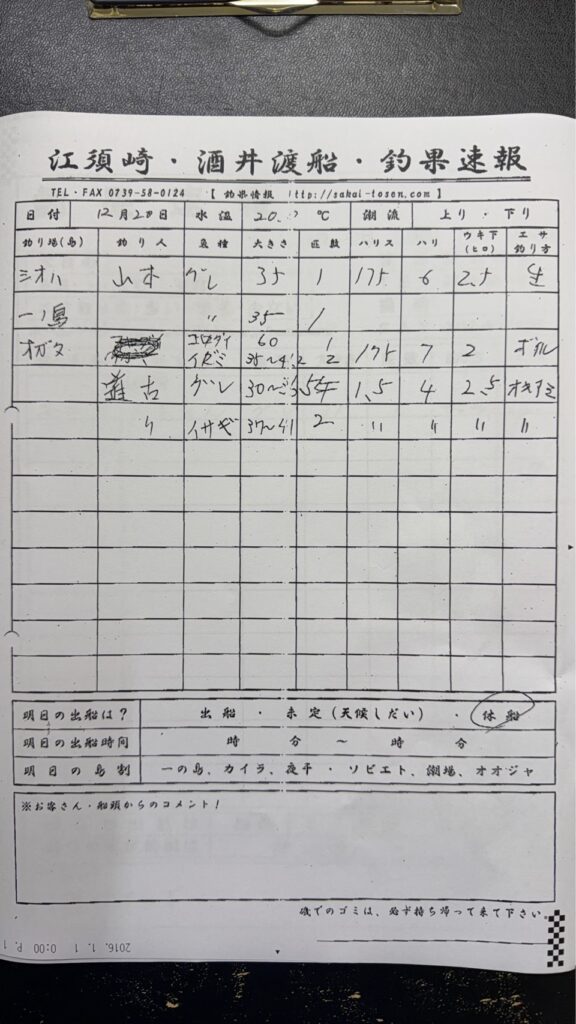 江須崎・酒井渡船・釣果速報
TEL・FAX 0739-58-0124 【 釣果情報 http://sakai-tosen.com 】
日付 12月2 日 水温 20. ℃ 潮流 上り ・ 下り
釣り場(島) 釣り人 魚種 大きさ 匹数 ハリス ハリ ウキ下(ヒロ) エサ釣り方
シオハ 山本 グレ 35 1 1.75 6 2.5 生
一ノ島 〃 35 1
オガタ コロダイ 60 1
イズミ 2 1.75 7 2 ボイル
古 グレ 30〜 1.5 4 2.5 オキアミ
〃 イサギ 37〜41 2 〃 〃 〃 〃
明日の出船は? 出船 ・ 未定(天候しだい) ・ 休船
明日の出船時間 時 分 〜 時 分
明日の島割 一の島、カイラ、夜平 ・ ソビエト、潮場、オオジャ
※お客さん・船頭からのコメント!
磯でのゴミは、必ず持ち帰って来て下さい。
2016. 1. 1 0:00 P. 1